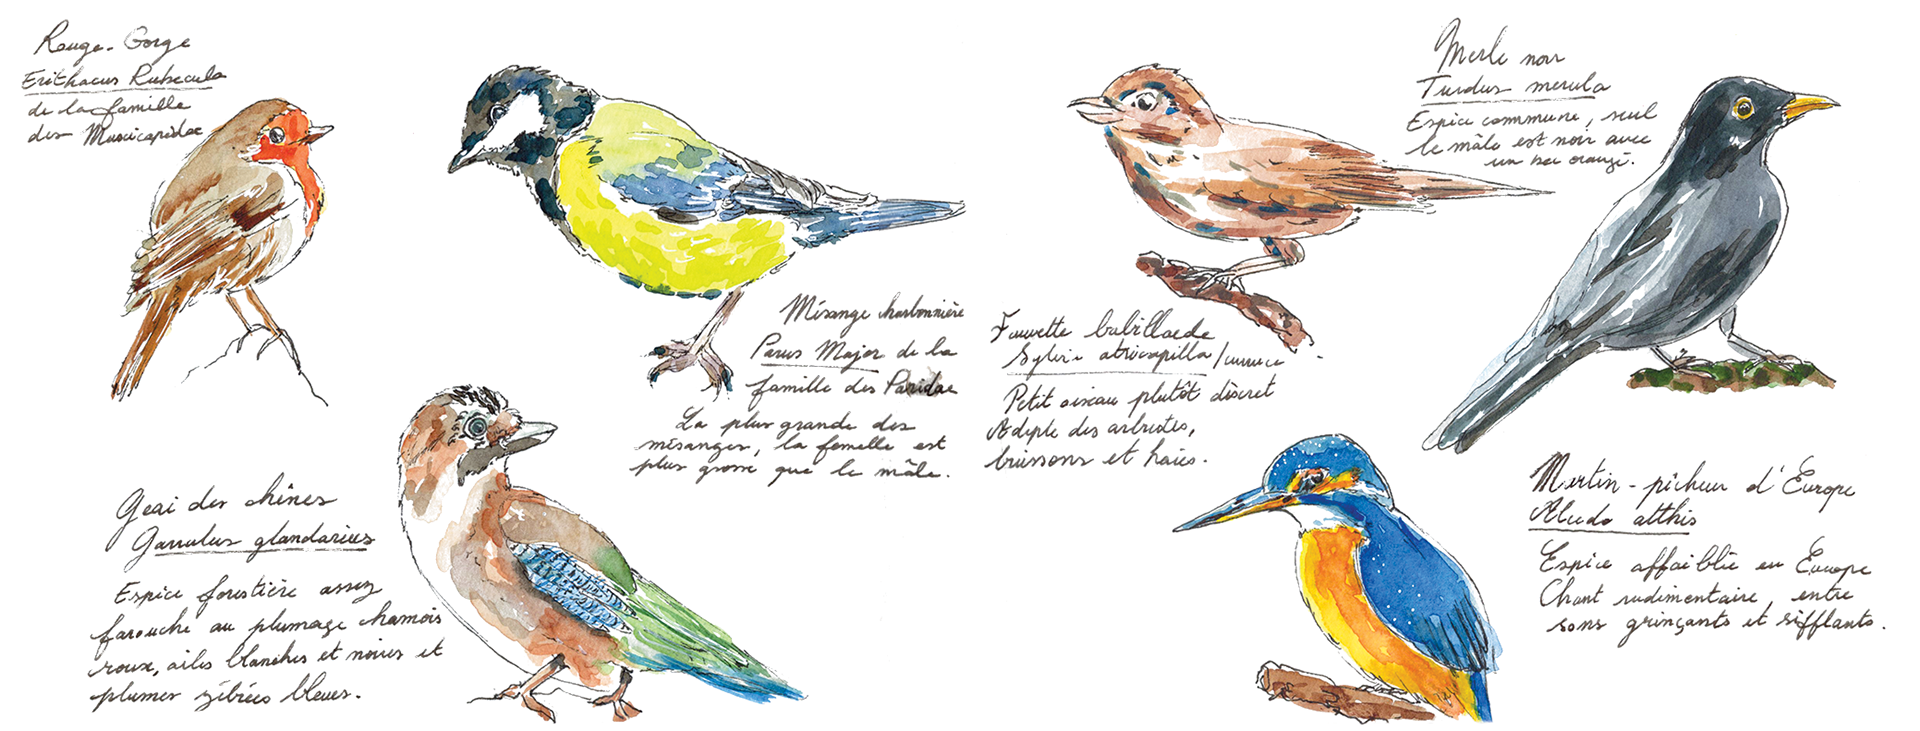 Rouge-Gorge
Erithacus Rubecula
de la famille
des Muscicapidae
Mésange charbonnière
Parus Major de la
famille des Paridae
La plus grande des
mésanges, la femelle est
plus grosse que le mâle.
Fauvette babillarde
Sylvia atricapilla/curruca
Petit oiseau plutôt discret
Adepte des arbustes,
buissons et haies.
Merle noir
Turdus merula
Espèce commune, seul
le mâle est noir avec
un bec orangé.
Geai des chênes
Garrulus glandarius
Espèce forestière assez
farouche au plumage chamois
roux, ailes blanches et noires et
plumes zébrées bleues.
Martin-pêcheur d'Europe
Alcedo atthis
Espèce affaiblie en Europe
Chant rudimentaire, entre
sons grinçants et sifflants.